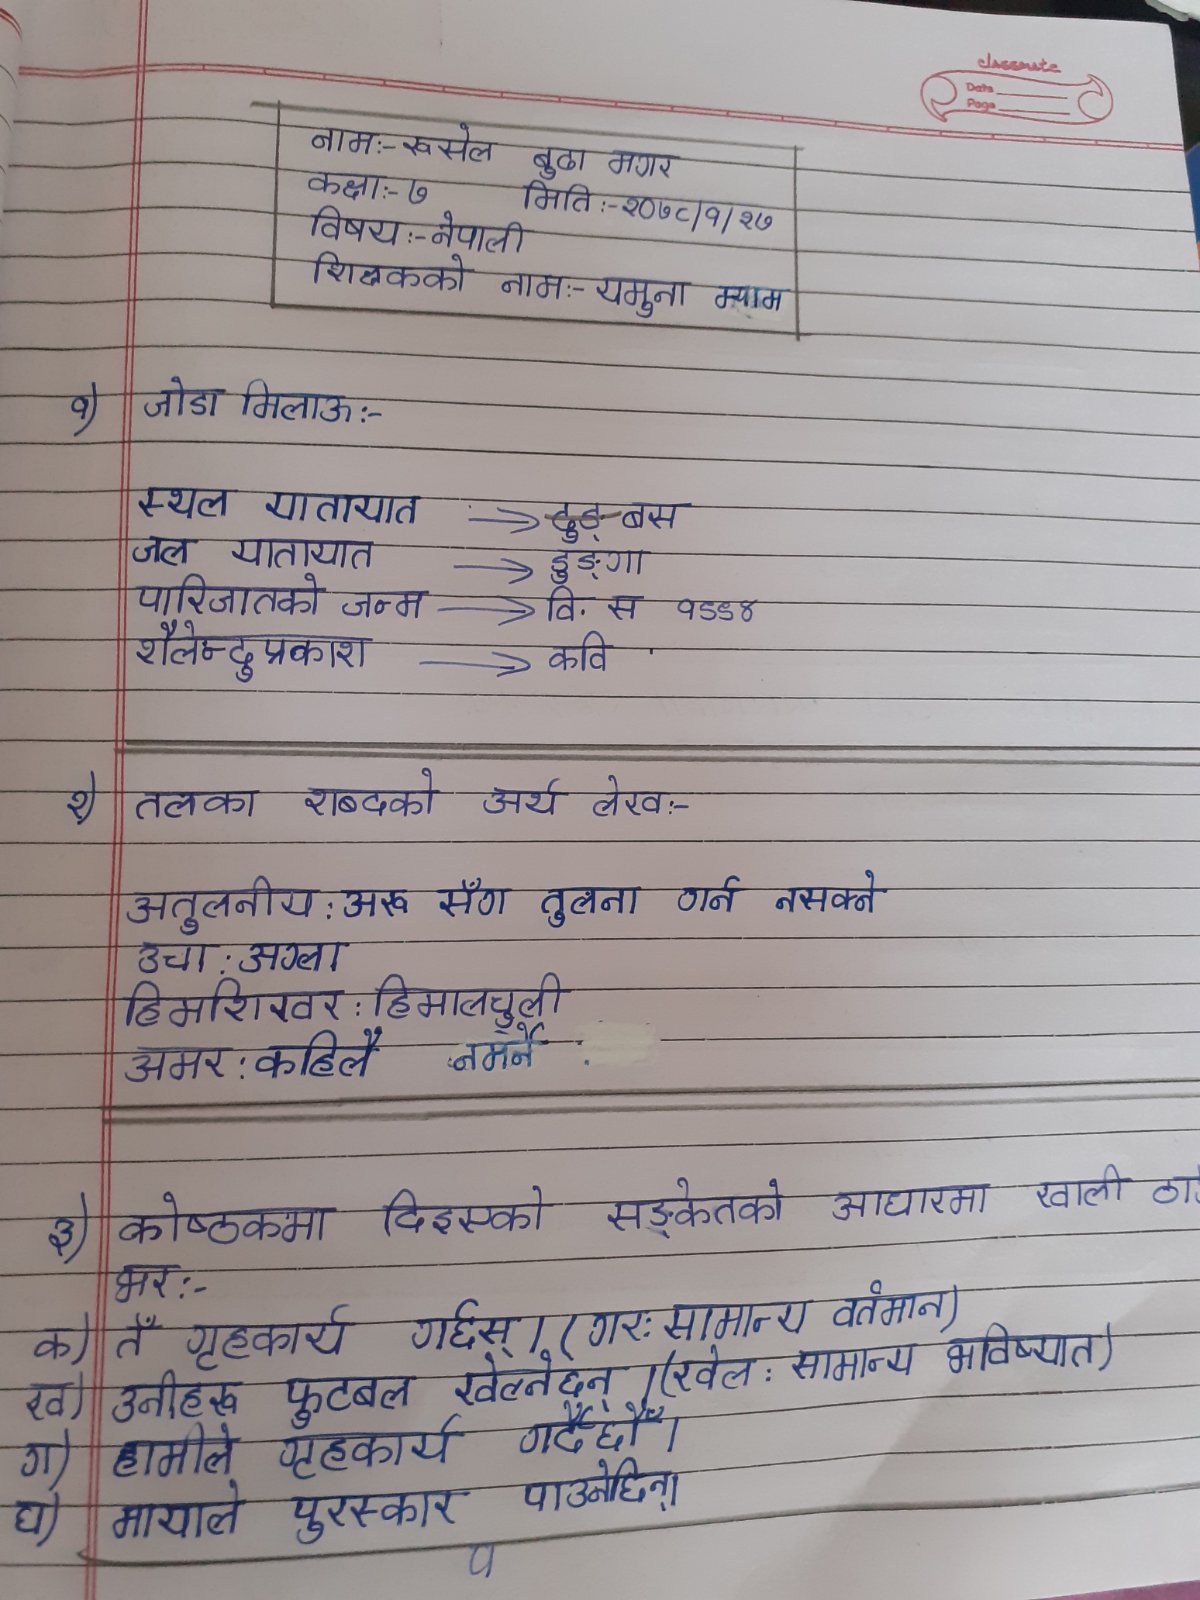 classmate
Date
Page
नामः-रूसेल बुढा मगर
कक्षाः-७ मितिः-२०७८/१/२७
विषयः-नेपाली
शिक्षकको नामः- यमुना म्याम
१) जोडा मिलाऊः-
स्थल यातायात → बस
जल यातायात → डुङ्गा
पारिजातको जन्म → वि. स १९९४
शैलेन्दुप्रकाश → कवि
२) तलका शब्दको अर्थ लेखः-
अतुलनीय : अरू सँग तुलना गर्न नसक्ने
उचा : अग्ला
हिमशिखर : हिमालचुली
अमर : कहिलै नमर्ने
३) कोष्ठकमा दिइएको सङ्केतको आधारमा खाली
भरः-
क) तँ गृहकार्य गर्छस्। (गरः सामान्य वर्तमान)
ख) उनीहरू फुटबल खेल्नेछन्। (खेल : सामान्य भविष्यात)
ग) हामीले गृहकार्य गर्दैछौँ।
घ) मायाले पुरस्कार पाउनेछिन्।
१